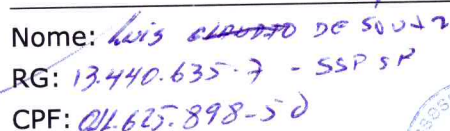 Nome: Luis CLAUDIO DE SOUZA
RG: 13.440.635-7 - SSP SP
CPF: 011.625.898-50